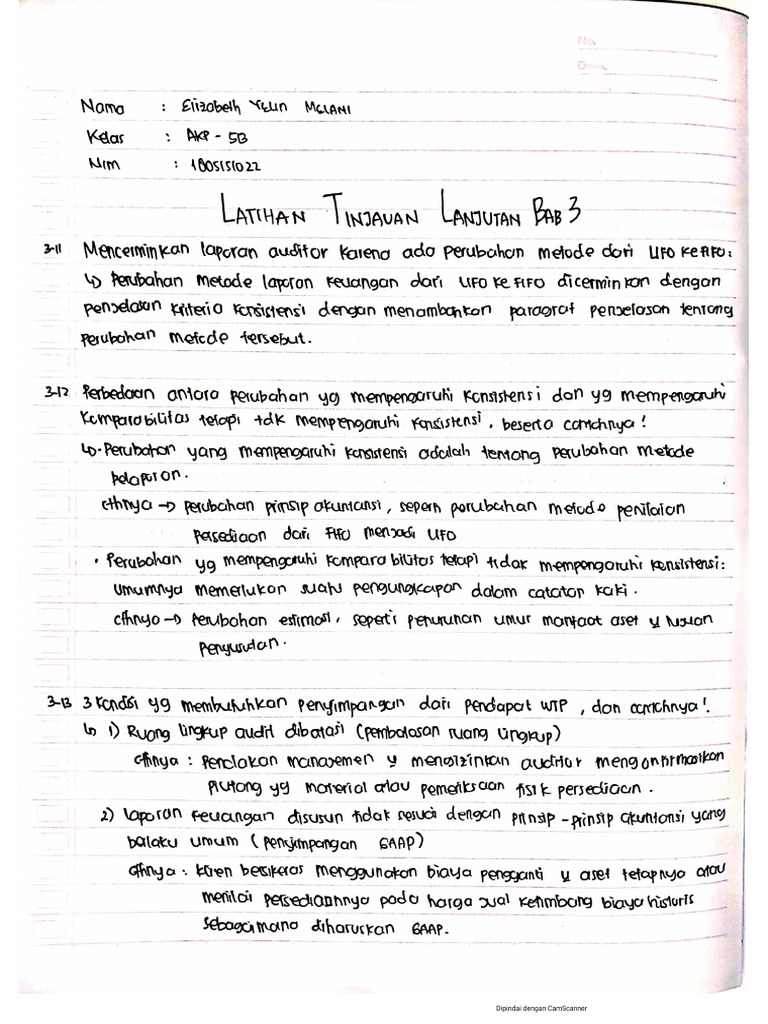 No.
Date
Nama : Elizabeth Yelin Melani
Kelas : AKP - 5B
Nim : 1805151022
LATIHAN TINJAUAN LANJUTAN BAB 3
3-11 Mencerminkan laporan auditor karena ada perubahan metode dari LIFO ke FIFO:
↳ Perubahan metode laporan keuangan dari LIFO ke FIFO dicerminkan dengan
penjelasan kriteria konsistensi dengan menambahkan paragraf penjelasan tentang
perubahan metode tersebut.
3-12 Perbedaan antara perubahan yg mempengaruhi konsistensi dan yg mempengaruhi
komparabilitas tetapi tdk mempengaruhi konsistensi, beserta contohnya!
↳ • Perubahan yang mempengaruhi konsistensi adalah tentang perubahan metode
pelaporan.
cthnya → perubahan prinsip akuntansi, seperti perubahan metode penilaian
persediaan dari FIFO menjadi LIFO
• Perubahan yg mempengaruhi komparabilitas tetapi tidak mempengaruhi konsistensi:
umumnya memerlukan suatu pengungkapan dalam catatan kaki.
cthnya → Perubahan estimasi, seperti penurunan umur manfaat aset u tujuan
penyusutan.
3-13 3 kondisi yg membutuhkan penyimpangan dari pendapat WTP, dan contohnya!
↳ 1) Ruang lingkup audit dibatasi (pembatasan ruang lingkup)
cthnya : Penolakan manajemen u mengizinkan auditor mengonfirmasikan
piutang yg material atau pemeriksaan fisik persediaan.
2) laporan keuangan disusun tidak sesuai dengan prinsip-prinsip akuntansi yang
balaku umum (penyimpangan GAAP)
cthnya : klien bersikeras menggunakan biaya pengganti u aset tetapnya atau
menilai persediannya pada harga jual ketimbang biaya historis
sebagaimana diharuskan GAAP.
Dipindai dengan CamScanner